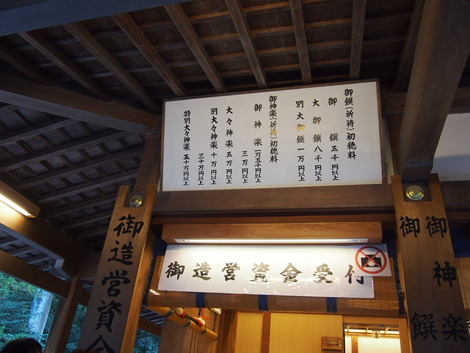 御饌(祈祷)初穂料
御饌 五千円以上
大御饌 八千円以上
別大御饌 一万円以上
御神楽(祈祷)初穂料
御神楽 一万五千円以上
三万円以上
大々神楽 五万円以上
別大々神楽 十万円以上
三十万円以上
特別大々神楽 五十万円以上
御造営資金受付
御神楽
御饌
御造営資金